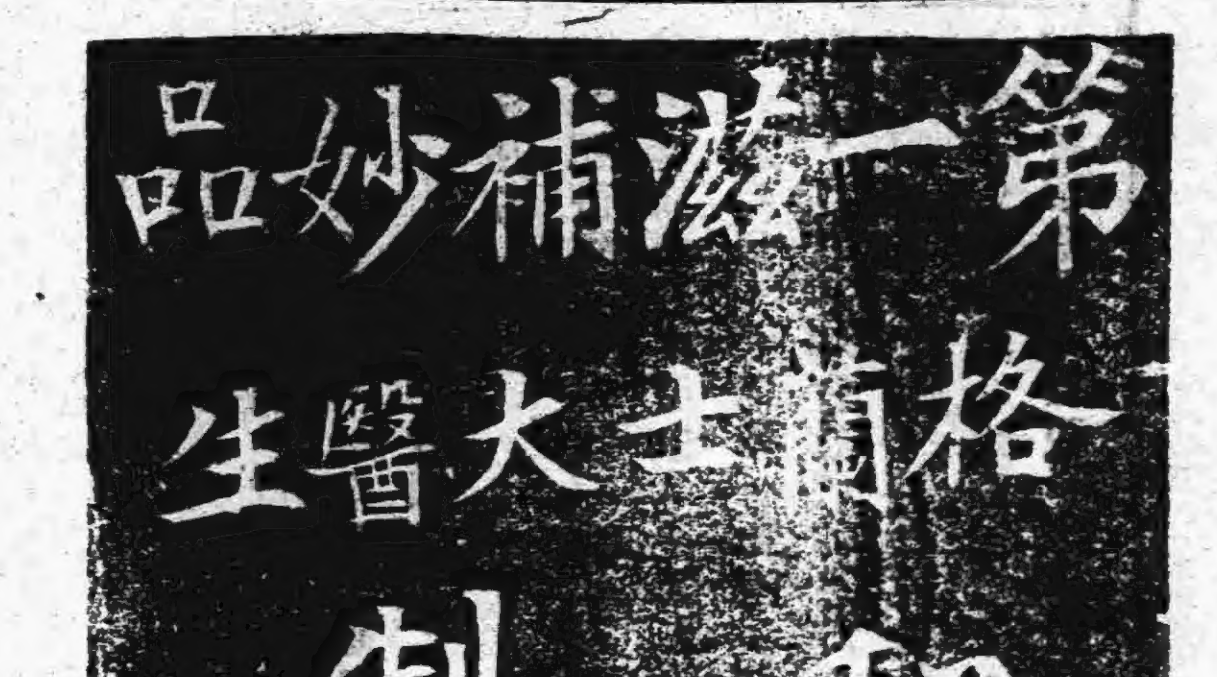 第一滋補妙品
格蘭士大醫生